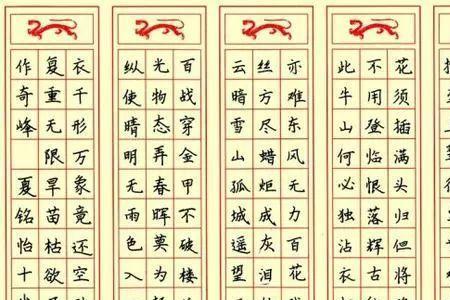 花须插满头归但将
不用登临恨落辉古
此牛山何必独沾衣
亦难东风无力百花
丝方尽蜡炬成灰泪
云暗雪山孤城遥望
百战穿金甲不破楼
光物态弄春晖莫为
纵使晴明无雨色入
衣千形万象竟还空
复重无限旱苗枯欲
作奇峰 夏铭怡十